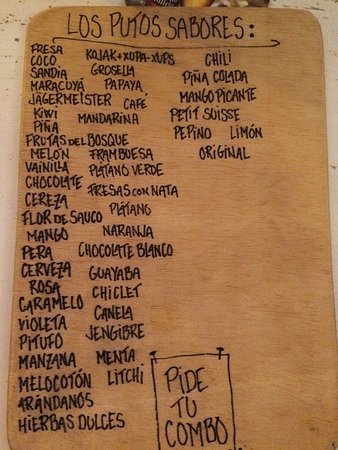 LOS PUTOS SABORES:
FRESA
COCO
SANDÍA
MARACUYÁ
JÄGERMEISTER
KIWI
PIÑA
FRUTAS DEL BOSQUE
MELÓN
VAINILLA
CHOCOLATE
CEREZA
FLOR DE SAUCO
MANGO
PERA
CERVEZA
ROSA
CARAMELO
VIOLETA
PITUFO
MANZANA
MELOCOTÓN
ARÁNDANOS
HIERBAS DULCES
KOJAK+XUPA-XUPS
GROSELLA
PAPAYA
CAFÉ
MANDARINA
FRAMBUESA
PLÁTANO VERDE
FRESAS CON NATA
PLÁTANO
NARANJA
CHOCOLATE BLANCO
GUAYABA
CHICLET
CANELA
JENGIBRE
MENTA
LITCHI
CHILI
PIÑA COLADA
MANGO PICANTE
PETIT SUISSE
PEPINO LIMÓN
ORIGINAL
PIDE
TU
COMBO